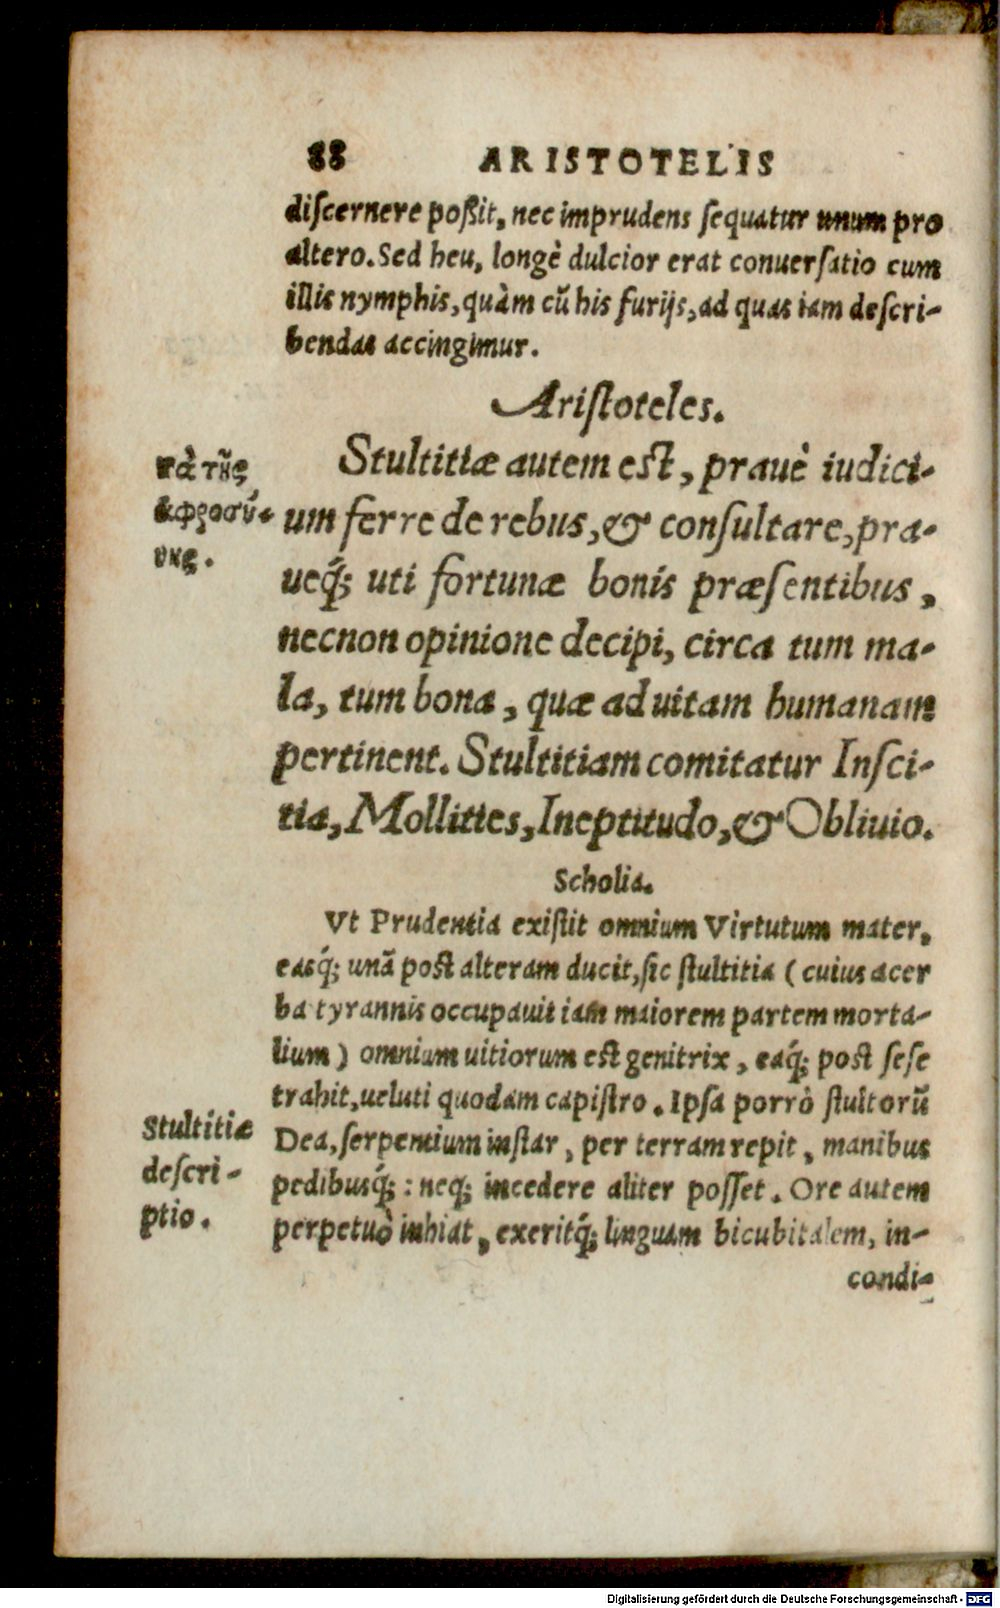 88 ARISTOTELIS
diſcernere poßit, nec imprudens ſequatur unum pro
altero. Sed heu, longè dulcior erat conuerſatio cum
illis nymphis, quàm cũ his furijs, ad quas iam deſcri-
bendas accingimur.
Ariſtoteles.
τὰ τῆς
ἀφροσύ-
νης.
Stultitiæ autem est, prauè iudici-
um ferre de rebus, & conſultare, pra-
ueq́; uti fortunæ bonis præſentibus,
necnon opinione decipi, circa tum ma-
la, tum bona, quæ ad uitam humanam
pertinent. Stultitiam comitatur Inſci-
tia, Mollities, Ineptitudo, & Obliuio.
Scholia.
Vt Prudentia exiſtit omnium Virtutum mater,
easq́; unã post alteram ducit, ſic ſtultitia (cuius acer
ba tyrannis occupauit iam maiorem partem morta-
lium) omnium uitiorum est genitrix, eaq́; post ſeſe
trahit, ueluti quodam capiſtro. Ipſa porrò ſtultorũ
Dea, ſerpentium inſtar, per terram repit, manibus
pedibusq́;: neq; incedere aliter poſſet. Ore autem
perpetuò inhiat, exeritq́; linguam bicubitalem, in-
Stultitiæ
deſcri-
ptio.
condi-
Digitalisierung gefördert durch die Deutsche Forschungsgemeinschaft - DFG